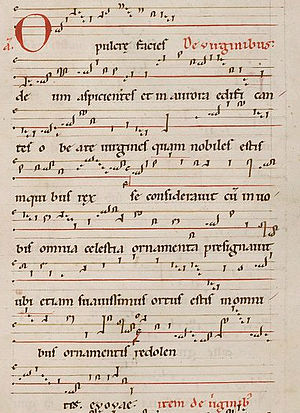 O pulcre facies De virginibus.
de um aspicientes et in aurora edifi can
tes o be ate virgines quam nobiles estis
in qui bus rex se consideravit cū in vo
bis omnia celestia ornamenta presignavit
ubi etiam suavissimus ortus estis in omni
bus ornamentis redolen
tes. evovae. item de virginib